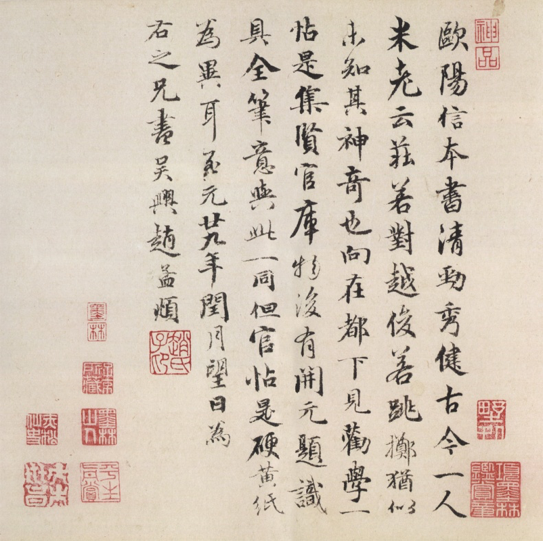 神品
歐陽信本書清勁秀健古今一人
米老云莊若對越俊若跳擲猶似
未知其神奇也向在都下見勸學一
帖是集賢官庫物後有開元題識
具全筆意與此一同但官帖是硬黃紙
為異耳至元廿九年閏月望日為
右之兄書吳興趙孟頫
趙氏子昂
墨林
墨林山人
項墨林鑑賞章